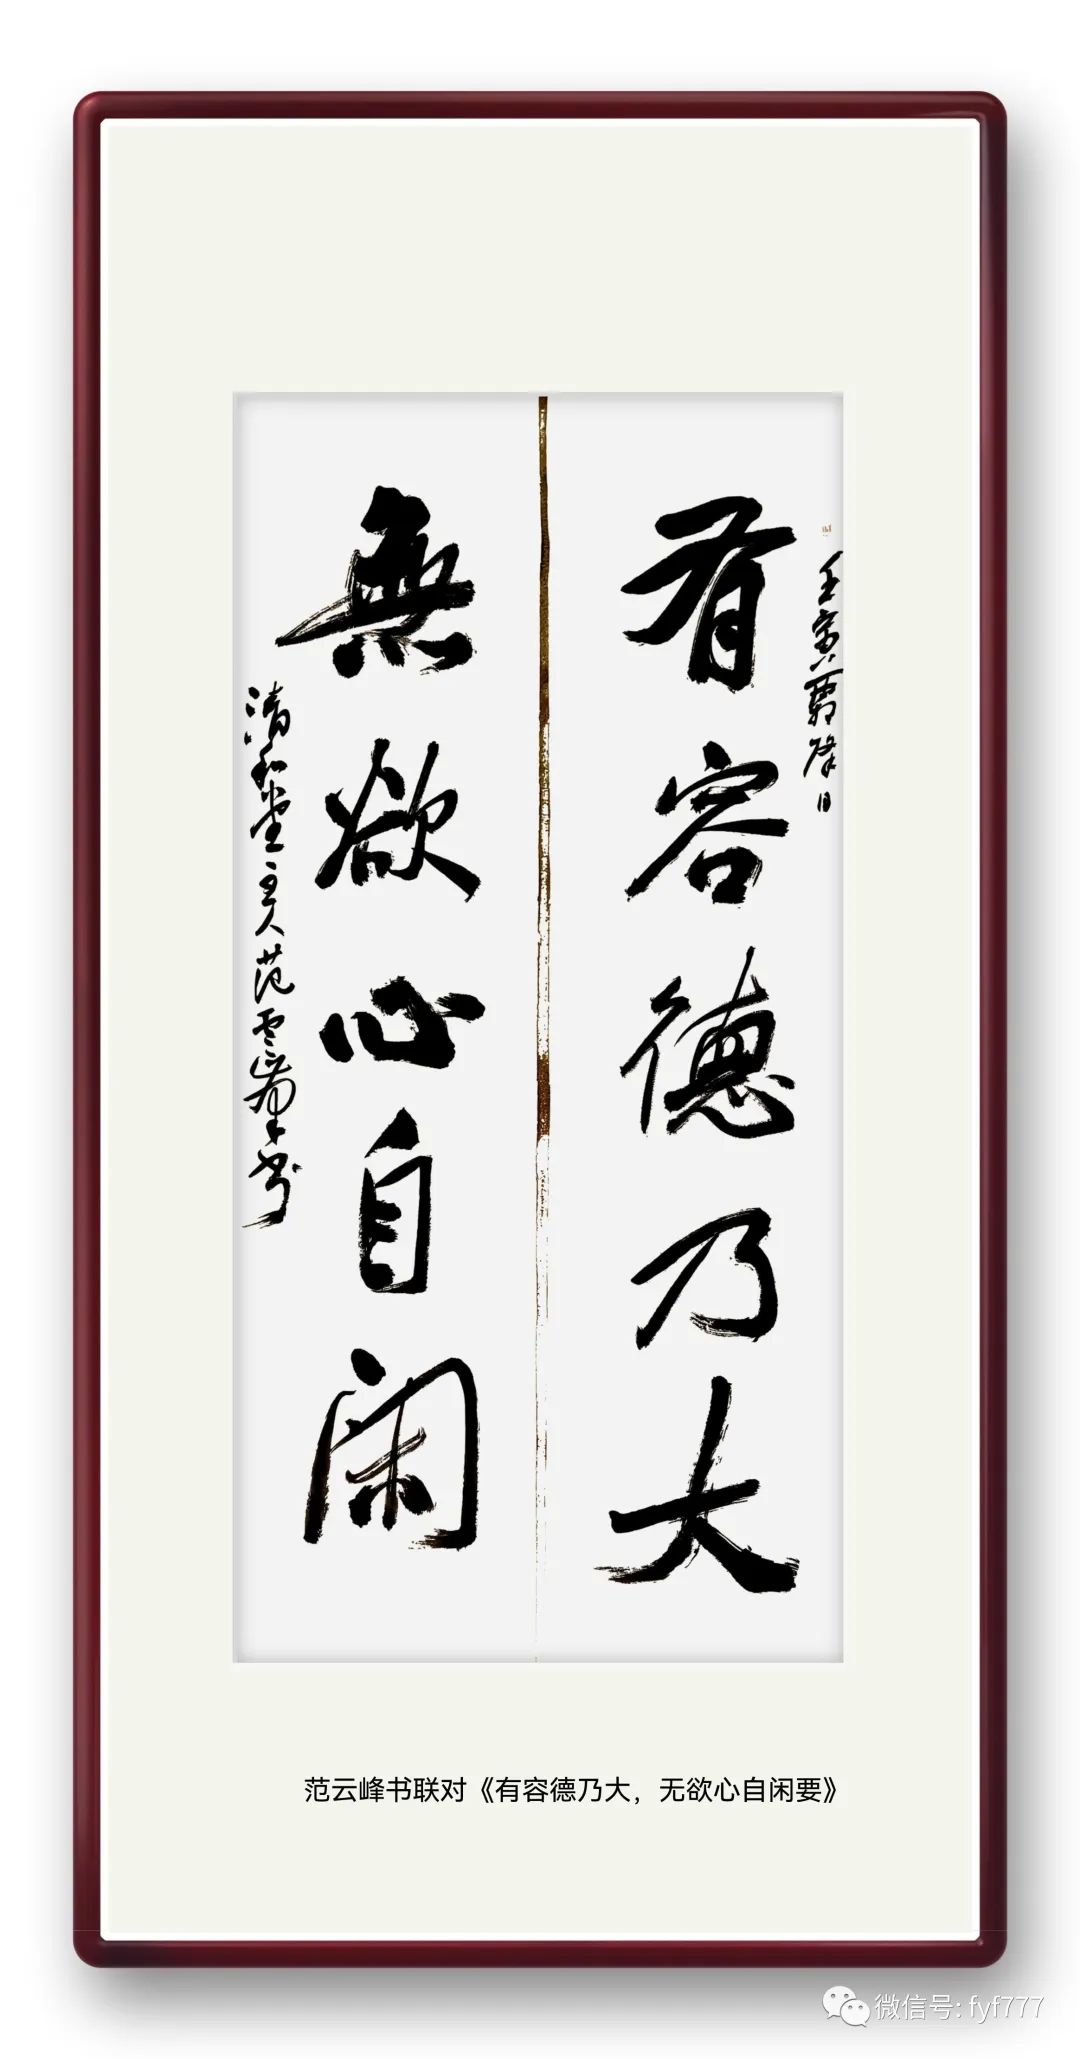 有容德乃大
壬寅霸降日
無欲心自闲
清和堂主人范云峰书
范云峰书联对《有容德乃大，无欲心自闲要》
微信号: fyf777